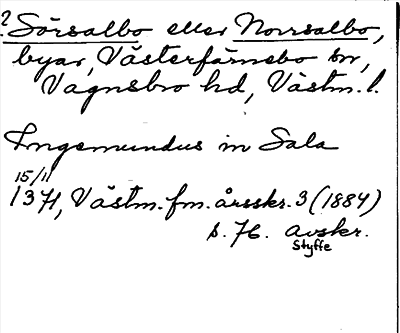 ? Sörsalbo eller Norrsalbo,
byar, Västerfärnebo sn,
Vagnsbro hd, Västm. l.
Ingemundus in Sala
15/11
1371, Västm. fm. årsskr. 3 (1884)
s. 76. avskr.
Styffe